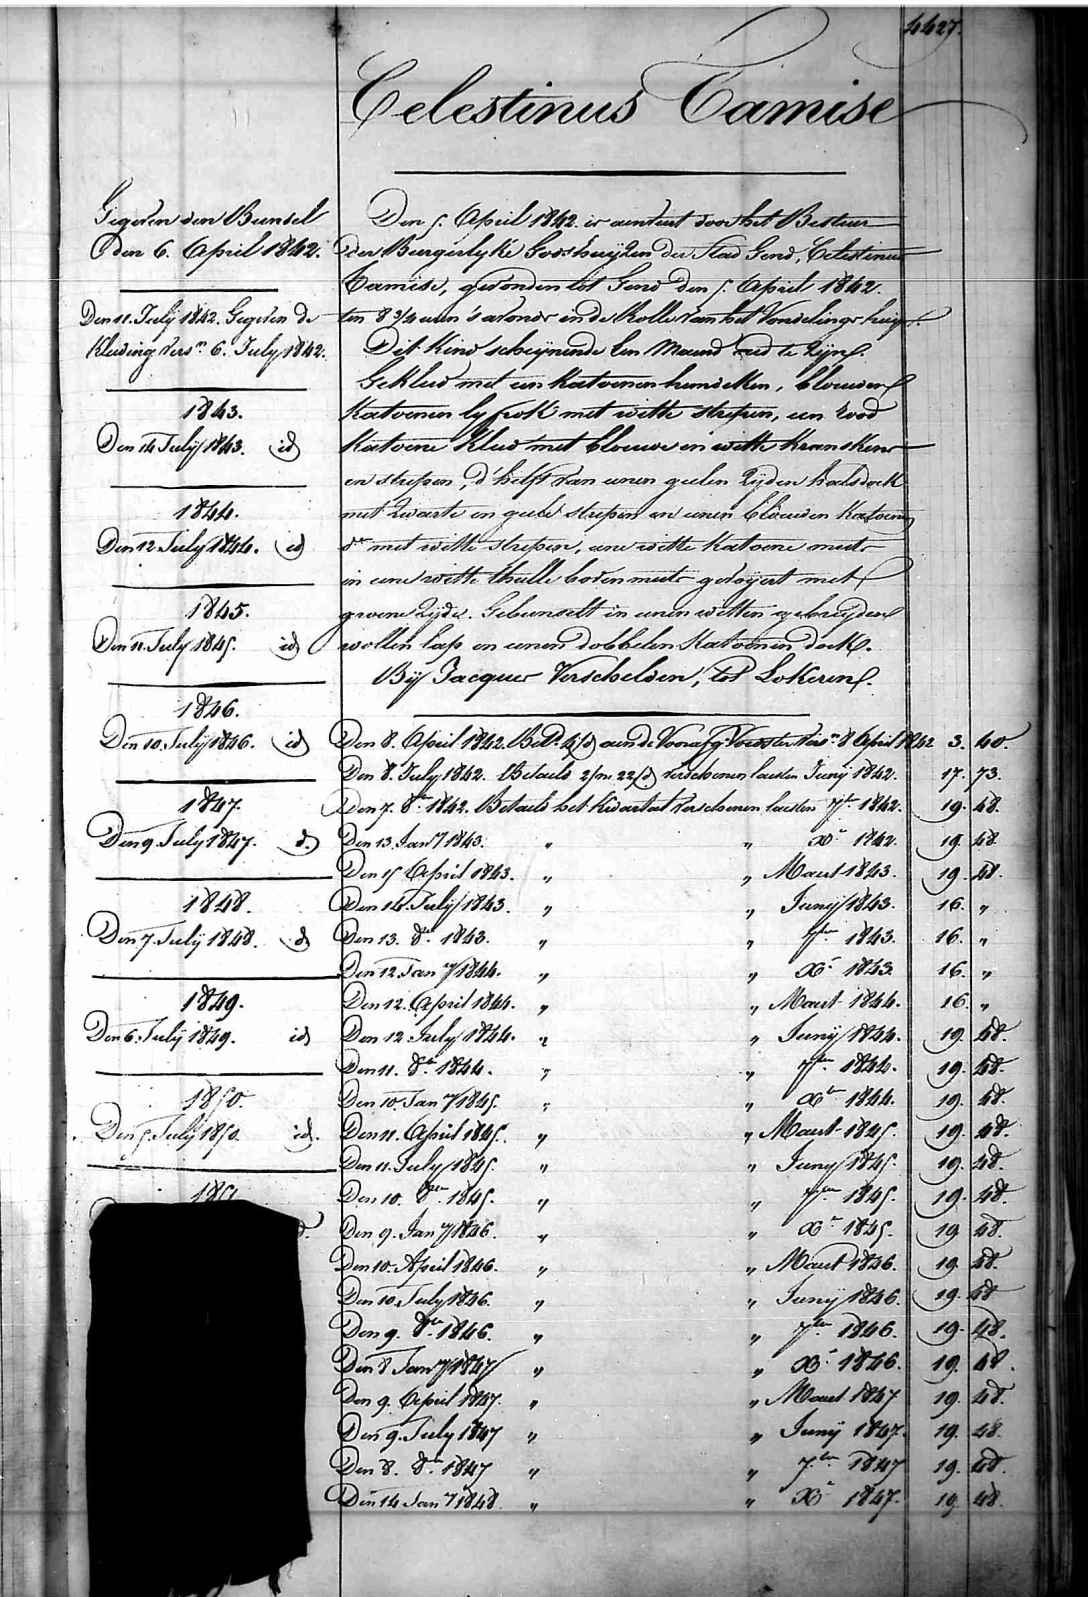 4427.
Celestinus Tamise
Gegeven den Bunsel
den 6. April 1842.
Den 11. July 1842. Gegeven de
Kleeding vers.n 6. July 1842.
1843.
Den 14 July 1843. id
1844.
Den 12 July 1844. id
1845.
Den 11. July 1845. id
1846.
Den 10. July 1846. id
1847.
Den 9. July 1847. d.
1848.
Den 7. July 1848. d
1849.
Den 6. July 1849. id
1850.
Den 5. July 1850. id.
1851
Den 5. April 1842. is aenveert door het Bestuer
der Burgerlyke Godshuyzen der Stad Gend, Celestinus
Tamise, gevonden tot Gend den 5. April 1842.
ten 8 3/4 uren 's avonds in de Rolle van het Vondelings huys.
Dit Kind schynende een Maend oud te zyn.
Gekleed met een Katoenen hemdeken, blouwen
Katoenen lyfrok met witte strepen, een Rood
Katoene Kleed met blouwe en witte Kranskens
en strepen, d'helft van eenen geelen Zyden halsdoek
met zwarte en geele strepen en eenen blouwen Katoenen
d.o met witte strepen, eene witte Katoene muts
en eene witte thulle bovenmuts gevoyert met
groene Zyde. Gebunselt in eenen witten gebreyden
wollen lap en eenen dobbelen Katoenen doek.
By Jacques Verschelden, tot Lokeren.
Den 8. April 1842. Bet.d aen de Voorster vers.n 8 April 1842 3. 40.
Den 8. July 1842. Betaeld 2/m 22/d verschenen laesten Juny 1842. 17. 73.
Den 7. 8.er 1842. Betaeld het Kwartael verschenen laesten 7.er 1842. 19. 48.
Den 13. Jan.y 1843. " " X.r 1842. 19. 48
Den 15 April 1843. " " Maert 1843. 19. 48.
Den 14. July 1843. " " Juny 1843. 16. "
Den 13. 8.er 1843. " " 7.er 1843. 16. "
Den 12 Jan.y 1844. " " X.r 1843. 16. "
Den 12. April 1844. " " Maert 1844. 16. "
Den 12 July 1844. " " Juny 1844. 19. 48.
Den 11. 8.er 1844. " " 7.er 1844. 19. 48.
Den 10 Jan.y 1845. " " X.er 1844. 19. 48.
Den 11. April 1845. " " Maert 1845. 19. 48.
Den 11. July 1845. " " Juny 1845. 19. 48.
Den 10. 8.er 1845. " " 7.er 1845. 19. 48.
Den 9. Jan.y 1846. " " X.r 1845. 19 48.
Den 10. April 1846. " " Maert 1846. 19. 48.
Den 10. July 1846. " " Juny 1846. 19. 48
Den 9. 8.er 1846. " " 7.er 1846. 19. 48.
Den 8 Jan.y 1847 " " X.r 1846. 19. 48.
Den 9. April 1847. " " Maert 1847 19. 48.
Den 9. July 1847 " " Juny 1847. 19. 48.
Den 8. 8.er 1847 " " 7.er 1847 19. 48.
Den 14 Jan.y 1848 " " X.r 1847. 19 48.